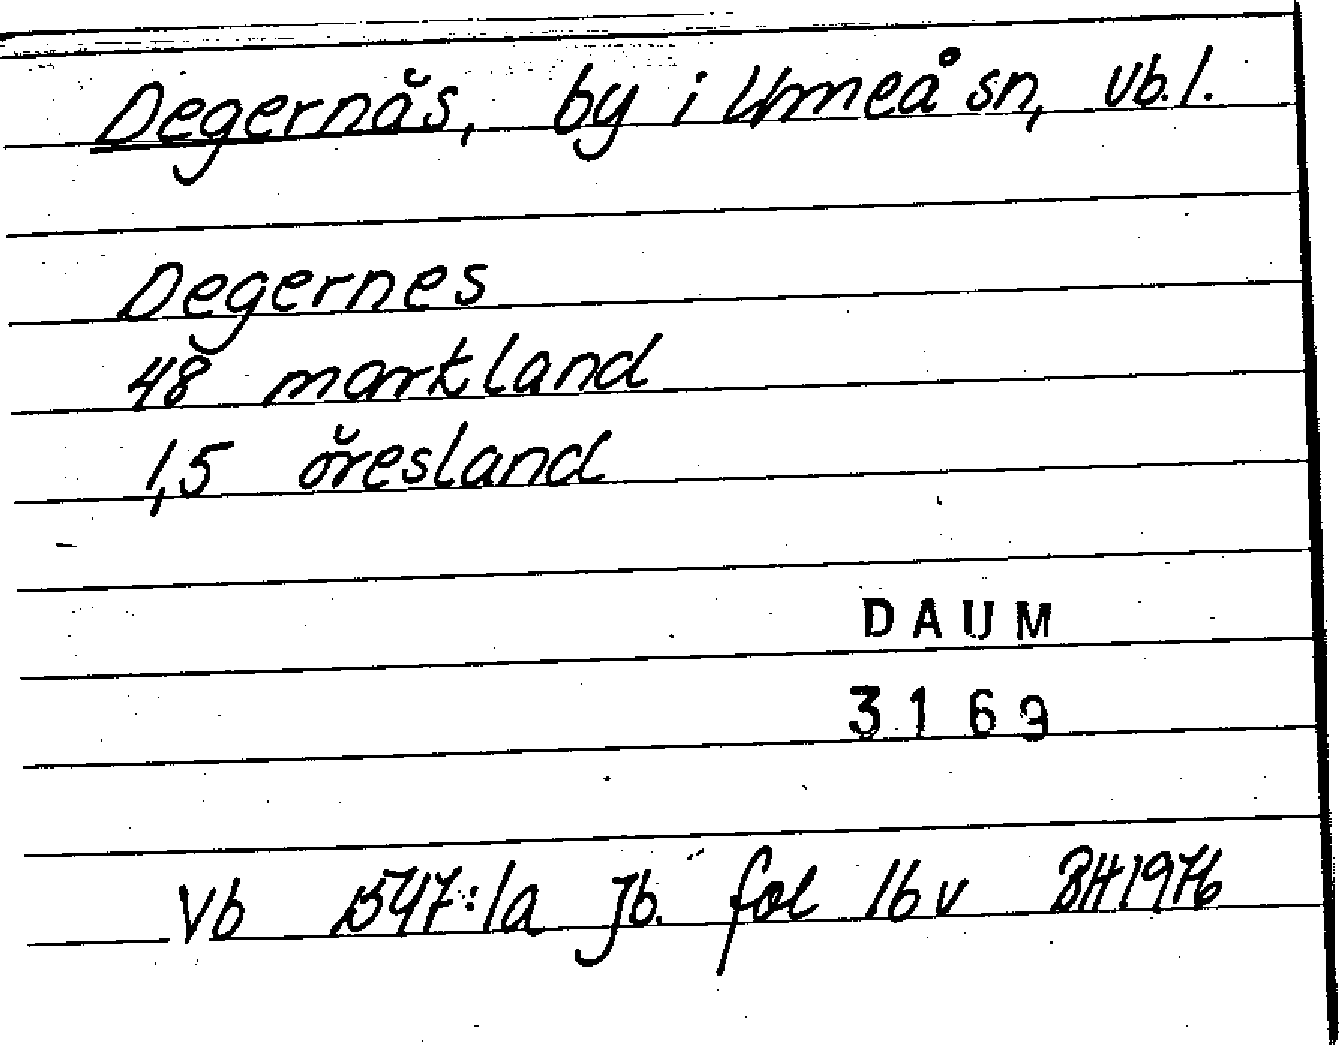 Degernäs, by i Umeå sn, Vb. l.
Degernes
48 markland
1,5 öresland
DAUM
3169
Vb 1547:1a Jb. fol 16 v BH 1976